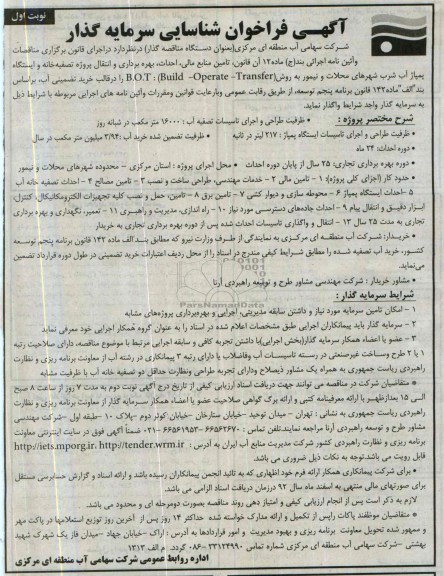 نوبت اول
آگهـی فراخوان شناسایی سرمایه گذار
شرکت سهامی آب منطقه ای مرکزی(بعنوان دستگاه مناقصه گذار) درنظردارد دراجرای قانون برگزاری مناقصات
وآئین نامه اجرائی بند(ج) ماده۱۲ آن قانون، تامین منابع مالی، احداث، بهره برداری و انتقال پروژه تصفیه‌خانه و ایستگاه
پمپاژ آب شرب شهرهای محلات و نیمور به روش(Build –Operate –Transfer) B.O.T را درقالب خرید تضمینی آب، براساس
بند"الف"ماده۱۴۲ قانون برنامه پنجم توسعه، از طریق رقابت عمومی وبارعایت قوانین ومقررات وآئین نامه های اجرایی مربوطه با شرایط ذیل
به سرمایه گذار واجد شرایط واگذار نماید.
شرح مختصر پروژه : * ظرفیت طراحی و اجرای تاسیسات تصفیه آب : ۱۶۰۰۰ متر مکعب در شبانه روز
* ظرفیت طراحی و اجرای تاسیسات ایستگاه پمپاژ : ۲۱۷ لیتر در ثانیه * ظرفیت تضمین شده خرید آب :۳/۹۴ میلیون متر مکعب در سال
* دوره احداث: ۲۴ ماه
* دوره بهره برداری تجاری: ۲۵ سال از پایان دوره احداث * محل اجرای پروژه : استان مرکزی – محدوده شهرهای محلات و نیمور
* حدود کار (اجزای کلی پروژه): ۱ – تامین مالی ۲ – خدمات مهندسی، طراحی ساخت و نصب ۳ – تامین مصالح ۴ – احداث تصفیه خانه آب
۵ –احداث ایستگاه پمپاژ ۶ – محوطه سازی و دیوار کشی ۷ – تامین برق ۸ – تامین، حمل و نصب کلیه تجهیزات الکترومکانیکال، کنترل،
ابزار دقیق و انتقال پیام ۹ – احداث جاده‌های دسترسی مورد نیاز ۱۰ – راه اندازی، مدیریت و راهبری ۱۱ – تعمیر، نگهداری و بهره برداری
تجاری به مدت ۲۵ سال ۱۳ – انتقال و واگذاری تاسیسات احداث شده پس از دوره بهره برداری تجاری به خریدار
* خریدار: شرکت آب منطقه ای مرکزی به نمایندگی از طرف وزارت نیرو که مطابق بند الف ماده ۱۴۲ قانون برنامه پنجم توسعه
کشور، خرید آب تصفیه شده را مطابق شرایط کیفی مندرج در اسناد را از محل ردیف اعتبارات خرید تضمینی در طول دوره قرارداد تضمین
می‌نماید.
* مشاور خریدار : شرکت مهندسی مشاور طرح و توسعه راهبردی آرنا
شرایط سرمایه گذار:
۱ – امکان تامین سرمایه مورد نیاز و داشتن سابقه مدیریتی، اجرایی و بهره‌برداری پروژه‌های مشابه
۲ – سرمایه گذار باید پیمانکاران اجرایی طبق مشخصات اعلام شده در اسناد را به عنوان گروه همکار اجرایی خود معرفی نماید
۳ – عضو یا اعضاء همکار سرمایه گذار(بخش اجرایی)با داشتن تجربه کافی و سابقه اجرایی مرتبط با موضوع مناقصه، دارای صلاحیت رتبه
۱ یا ۲ طرح وساخت غیرصنعتی در رسته تاسیسات آب وفاضلاب یا دارای رتبه ۲ پیمانکاری در رشته آب از معاونت برنامه ریزی و نظارت
راهبردی ریاست جمهوری به همراه یک مشاور ذیصلاح ودارای تجربه طراحی ونظارت حداقل دو تصفیه خانه آب با ظرفیت مشابه
* متقاضیان شرکت در مناقصه می توانند جهت دریافت اسناد ارزیابی کیفی از تاریخ درج آگهی نوبت دوم به مدت ۷ روز از ساعت ۸ صبح
الی ۱۵ بعدازظهر،با ارائه معرفینامه کتبی و ارائه برگ گواهی صلاحیت عضو یا اعضاء همکار سرمایه گذار از معاونت برنامه ریزی و نظارت
راهبردی ریاست جمهوری به نشانی : تهران – میدان توحید –خیابان ستارخان –خیابان کوثر دوم –پلاک ۱۰ –طبقه اول –شرکت مهندسی
مشاور طرح و توسعه راهبردی آرنا مراجعه نمایند.تلفن تماس : ۶۶۵۶۲۶۷۰ – ۶۶۵۶۱۹۵۳ –۰۲۱ ضمناً آگهی فوق در سایت اینترنتی معاونت
برنامه ریزی و نظارت راهبردی کشور شرکت مدیریت منابع آب ایران به آدرس : http://iets.mporg.ir. http://tender.wrm.ir
قابل رویت می باشد.توجه به نکات ذیل ضروری می باشد.
* برای شرکت پیمانکاری همکار ارائه فرم خود اظهاری که به تائید انجمن پیمانکاران رسیده باشد و ارائه اسناد و گزارش حسابرسی مستقل
برای صورتهای مالی منتهی به اسفند ماه سال ۹۲ درزمان دریافت اسناد الزامی می باشد.
لازم به ذکر است پس از انجام ارزیابی کیفی و امتیاز دهی روند مناقصه بصورت دومرحله ای و محدود می باشد.
* متقاضیان موظفند پاکات رایس از تکمیل و ارائه مدارک خواسته شده حداکثر ۱۴ روز پس از آخرین روز توزیع استعلامها در پاکت مهر
و ممهور شده تحویل معاونت برنامه ریزی و بهبود مدیریت و امور قراردادها به آدرس : اراک –خیابان جهاد –میدان فاز یک شهرک شهید
بهشتی –شرکت سهامی آب منطقه ای مرکزی شماره تماس ۳۳۱۲۴۹۹۰ – ۰۸۶ گردد. م الف ۱۳۱۳
اداره روابط عمومی شرکت سهامی آب منطقه ای مرکزی